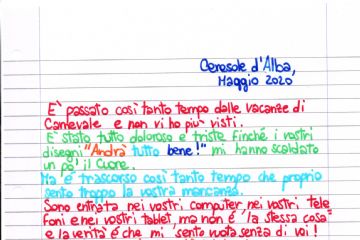 Ceresole d'Alba,
Maggio 2020
E' passato così tanto tempo dalle vacanze di
Carnevale e non vi ho più visti.
E' stato tutto doloroso e triste finché i vostri
disegni "Andrà tutto bene!" mi hanno scaldato
un po' il cuore.
Ma è trascorso così tanto tempo che proprio
sento troppo la vostra mancanza.
Sono entrata nei vostri computer, nei vostri tele
foni e nei vostri tablet, ma non è "la stessa cosa"
e la verità è che mi sento vuota senza di voi!